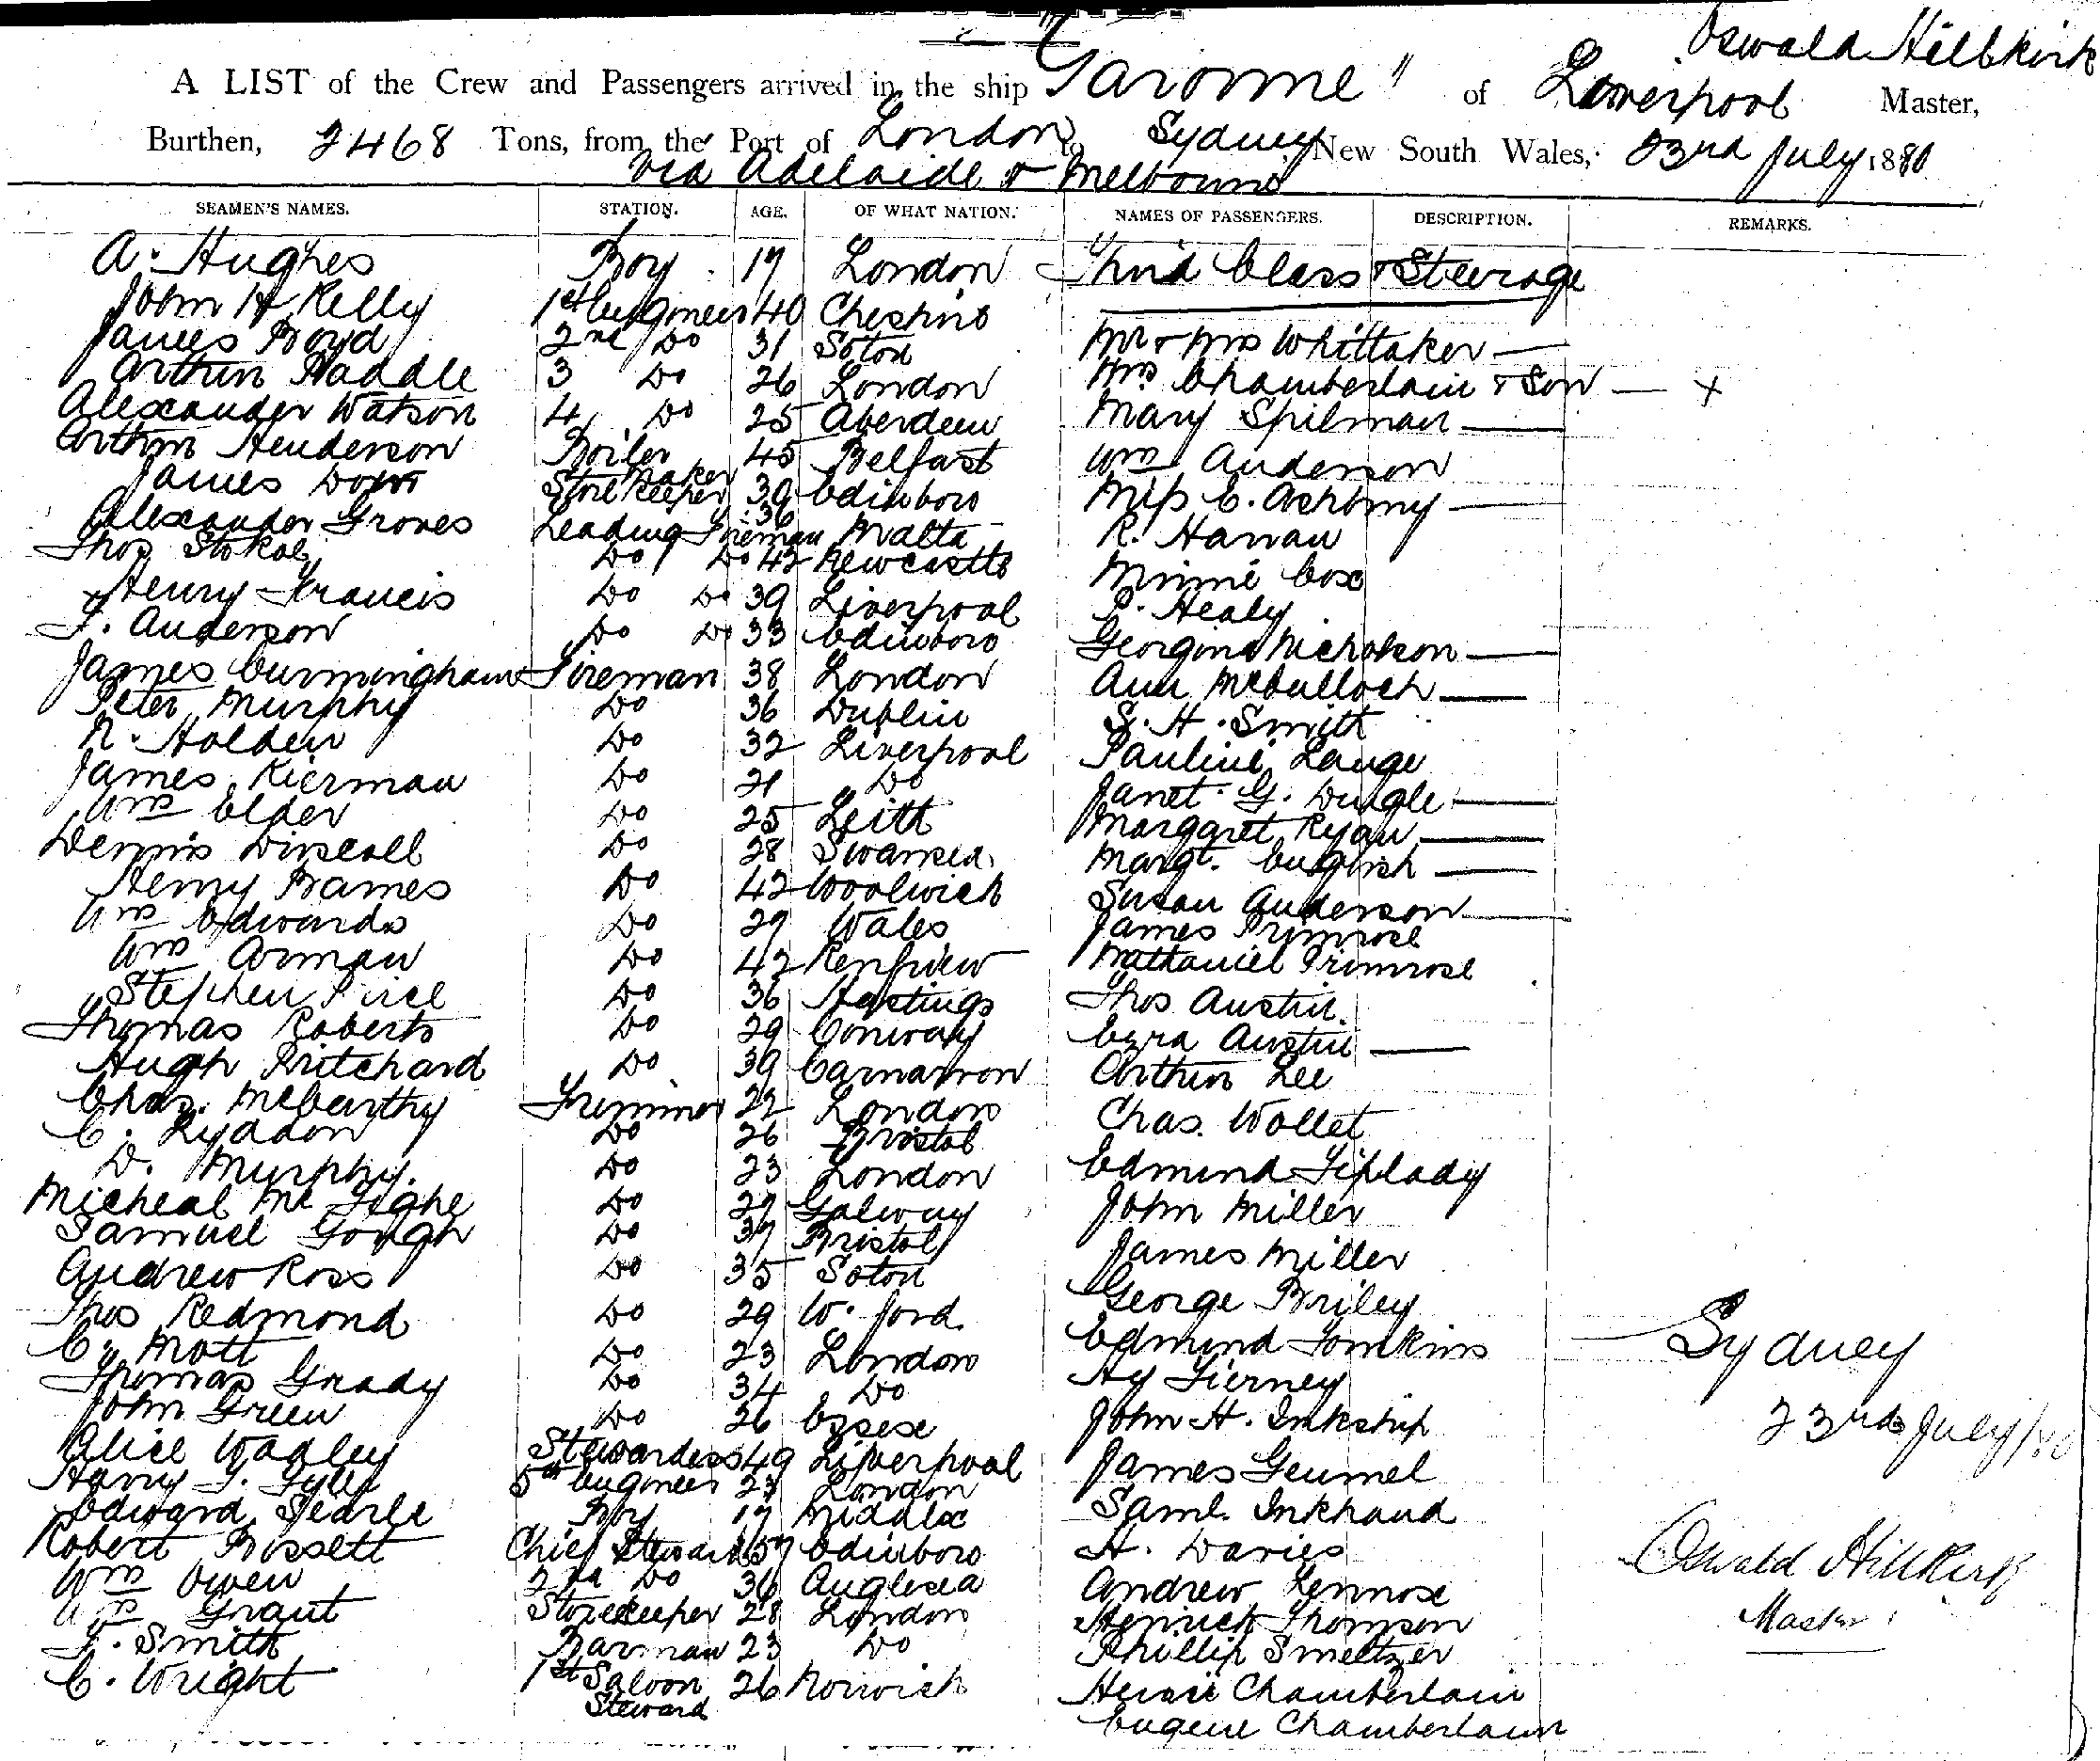 Oswald Hillkirk
A LIST of the Crew and Passengers arrived in the ship "Garonne" of Liverpool Master,
Burthen, 2468 Tons, from the Port of London to Sydney, New South Wales, 23rd July 1880
via Adelaide & Melbourne
SEAMEN'S NAMES. STATION. AGE. OF WHAT NATION. NAMES OF PASSENGERS. DESCRIPTION. REMARKS.
A. Hughes Boy 17 London Third Class & Steerage
John H. Kelly 1st Engineer 40 Cheshire
James Boyd 2nd Do 31 Soton Mr & Mrs Whittaker —
Arthur Raddle 3 Do 26 London Mrs Chamberlain & Son — x
Alexander Watson 4 Do 25 Aberdeen Mary Spilman —
Arthur Henderson Boiler Maker 45 Belfast Wm Anderson
James Storekeeper 39 Edinboro Miss E. —
Alexander Groves Leading Fireman 36 Malta R. Hanan
Thos Stokal Do Do 42 Newcastle Minnie Cox
Henry Francis Do Do 39 Liverpool P. Healy
F. Anderson Do Do 33 Edinboro Georgina Nicholson —
James Cunningham Fireman 38 London Ann McCulloch —
Peter Murphy Do 36 Dublin S. H. Smith
R. Holden Do 32 Liverpool Pauline Lange
James Kierman Do 21 Do Janet G. —
Wm Elder Do 25 Leith Margaret Ryan —
Dennis Driscoll Do 28 Swansea Margt. English —
Henry Barnes Do 42 Woolwich Susan Anderson —
Wm Edwards Do 29 Wales James Primrose
Wm Orman Do 42 Renfrew Nathaniel Primrose
Stephen Do 36 Hastings Thos Austin
Thomas Roberts Do 29 Conway Ezra Austin —
Hugh Pritchard Do 39 Carnarvon Arthur Lee
Chas. McCarthy Trimmer 22 London Chas. Wollet
C. Lyddon Do 26 Bristol
D. Murphy. Do 23 London Edmund Tiplady
Micheal Mc Tighe Do 29 Galway John Miller
Samuel Gough Do 37 Bristol
Andrew Ross Do 35 Soton James Miller
Thos Redmond Do 29 W. ford. George Briley
C. Mott Do 23 London Edmund Tomkins
Thomas Grady Do 34 Do Hy Tierney
John Green Do 26 Essex John H. Inkship
Alice Wadley Stewardess 49 Liverpool James Gemmel
Harry T. 5th Engineer 23 London
Edward Searle Boy 17 Middlx Saml. Inkhaud
Robert Bissett Chief Steward 57 Edinboro H. Davies
Wm Owen 2nd Do 36 Anglesea Andrew Lennox
Wm Grant Storekeeper 28 London Thomson
F. Smith Barman 23 Do Phillip Smeltzer
C. Wright 1st Saloon Steward 26 Norwich Chamberlain
Eugene Chamberlain
Sydney
23rd July/80
Oswald Hillkirk
Master